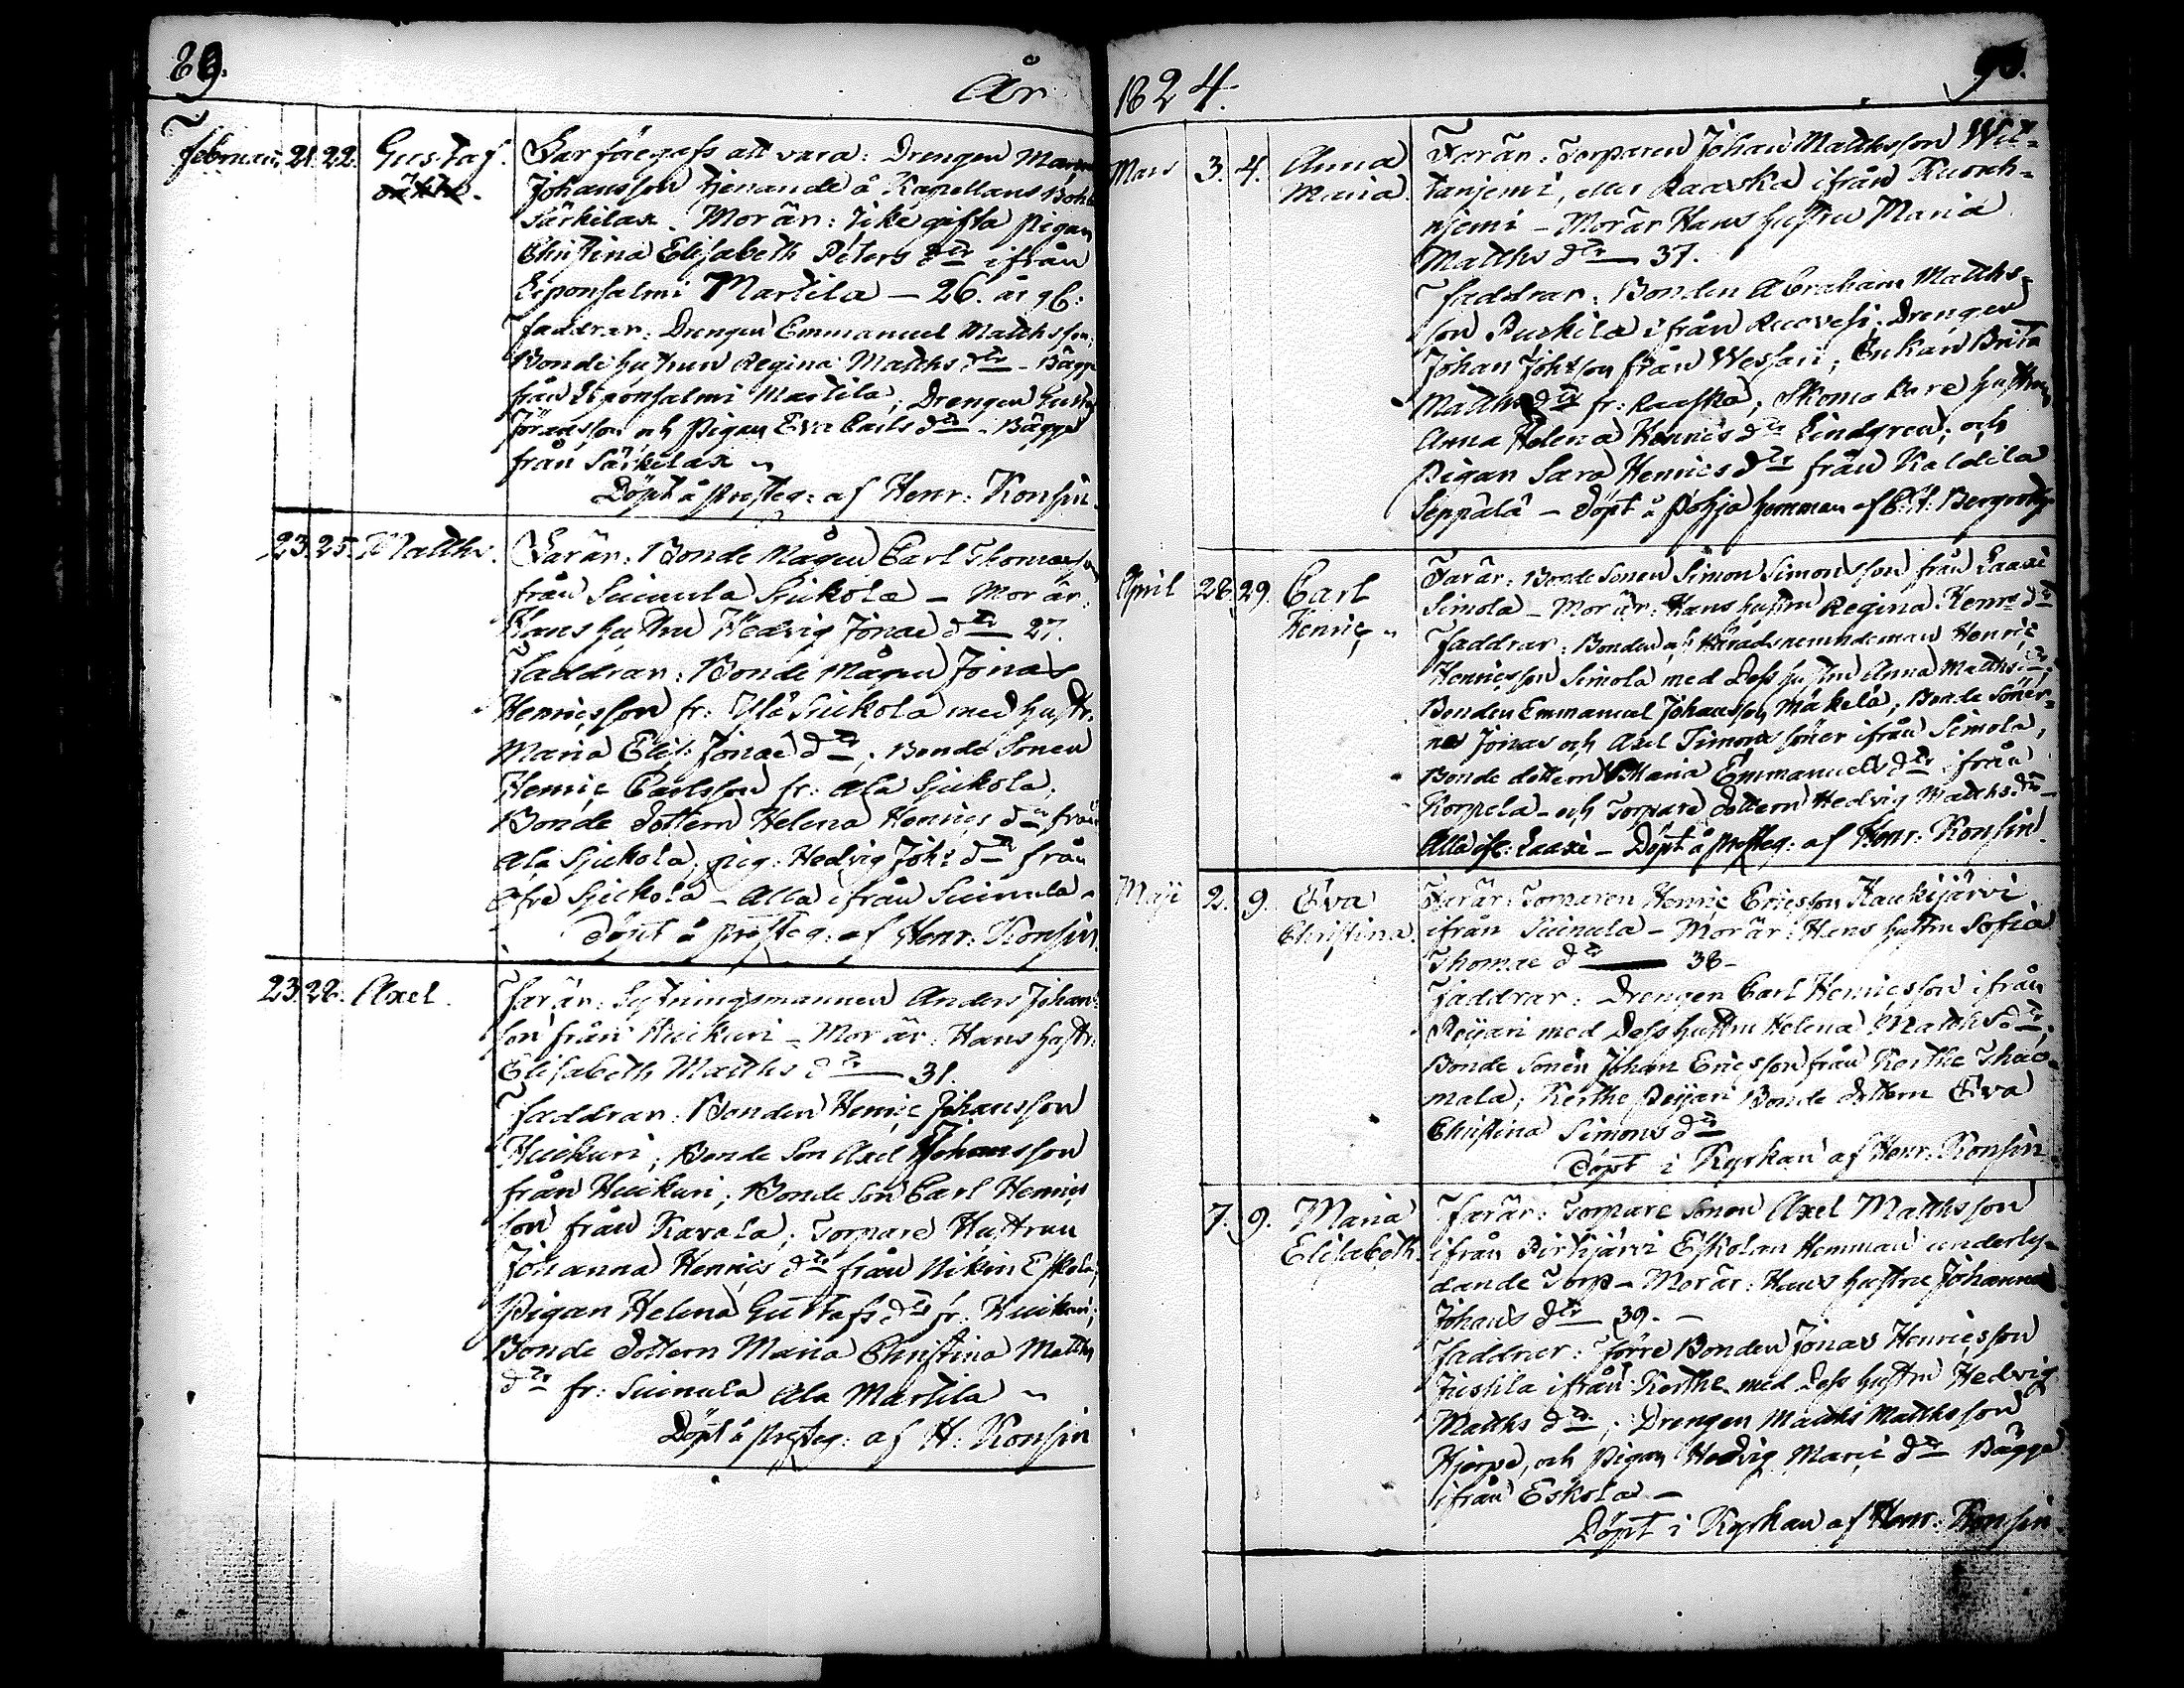 89.
År
Februari 21. 22. Gustaf. Far föregafs att vara: Drengen
oäkta. Johansson tjenande å Kapellans Bohl
Särkilax. Mor är: Icke gifta Pigan
Christina Elisabeth Peters dtr ifrån
Leponsalmi Martila — 26. år gl:
Faddrar: Drengen Emmanuel Matthsson,
Bonde hustrun Regina Matths dtr - Bägge
från Leponsalmi Martila; Drengen Gustaf
Göransson och Pigan Eva Carls dtr - Bägge
från Särkilax
Döpt å Presteg: af Henr: Konsin.
23. 25. Matths. Far är: Bonde Mågen Carl Thomasson
från Suinula Siukola — Mor är:
Hans hustru Hedvig Jonae dtr 27.
Faddrar: Bonde Mågen Jonas
Henricsson fr: Ylä Siukola med hustr:
Maria Elis: Jonae dtr; Bonde Sonen
Henric Carlsson fr: Ala Sjukola;
Bonde dottern Helena Henrics dtr från
Ala Sjukola, pig: Hedvig Johs dtr från
Öfre Sjukola — Alla ifrån Suinula
Döpt å Presteg: af Henr: Konsin.
23. 28. Axel. Far är: Sytningsmannen Anders Johans
son från Huikuri — Mor är: Hans hustr:
Elisabeth Matths dtr — 31.
Faddrar: Bonden Henric Johansson
Huikuri; Bonde Son Axel Johansson
från Huikuri; Bonde Son Carl Henrics
son från Kavala; Torpare Hustrun
Johanna Henrics dtr från Eskola;
Pigan Helena Gustafs dtr fr: Huikuri;
Bonde dottern Maria Christina Matths
dtr fr: Suinula Ala Martila
Döpt å Presteg: af H: Konsin
1824.
90.
Mars 3. 4. Anna Far är: Torparen Johan Matthsson Wil-
Maria. tanjemi, eller Raaska ifrån Kuork-
njemi — Mor är Hans hustru Maria
Matths dtr — 37.
Faddrar: Bonden Abraham Matths-
son Puskila ifrån Ruovesi; Drengen
Johan Johsson från Wessari; Enkan Brita
Matths dtr fr: Raaska; Skomakare hustrun
Anna Helena Henrics dtr Lindgren; och
Pigan Sara Henrics dtr från Kaldila
Seppälä — Döpt å Pohja hemman af
April 28. 29. Carl Far är: Bonde Sonen Simon Simonsson från Laaxi
Henric Simola — Mor är: Hans hustru Regina Henrs dtr
Faddrar: Bonden och Häradsnemndeman Henric
Henricsson Simola med dess hustru Anna Matths dtr;
Bonden Emmanuel Johansson Mäkelä; Bonde söner-
na Jonas och Axel Simons söner ifrån Simola;
Bonde dottern Maria Emmanuels dtr ifrån
Korpela — och Torpare dottern Hedvig Matths dtr —
Alla ifr: Laaxi — Döpt å Presteg: af Henr: Konsin
Maji 2. 9. Eva Far är: Torparen Henric Ericsson Haukijärvi
Christina. ifrån Suinula — Mor är: Hans hustru Sofia
Thomae dtr — 38 —
Faddrar: Drengen Carl Henricsson ifrån
Peijari med dess hustru Helena Matths dtr;
Bonde Sonen Johan Ericsson från Kerthe Ihaa-
mala; Kerthe Peijari Bonde dottern Eva
Christina Simons dtr
Döpt i Kyrkan af Henr: Konsin
7. 9. Maria Far är: Torpare Sonen Axel Matthsson
Elisabeth. ifrån Pirkijärvi Eskolan Hemman underly-
dande Torp — Mor är: Hans hustru Johanna
Johans dtr 39. —
Faddrar: Förre Bonden Jonas Henricsson
Jussila ifrån Kerthe med dess hustru Hedvig
Matths dtr; Drengen Matths Matthsson
Hjerpe, och Pigan Hedvig Marie dtr Bägge
ifrån Eskola —
Döpt i Kyrkan af Henr: Konsin.